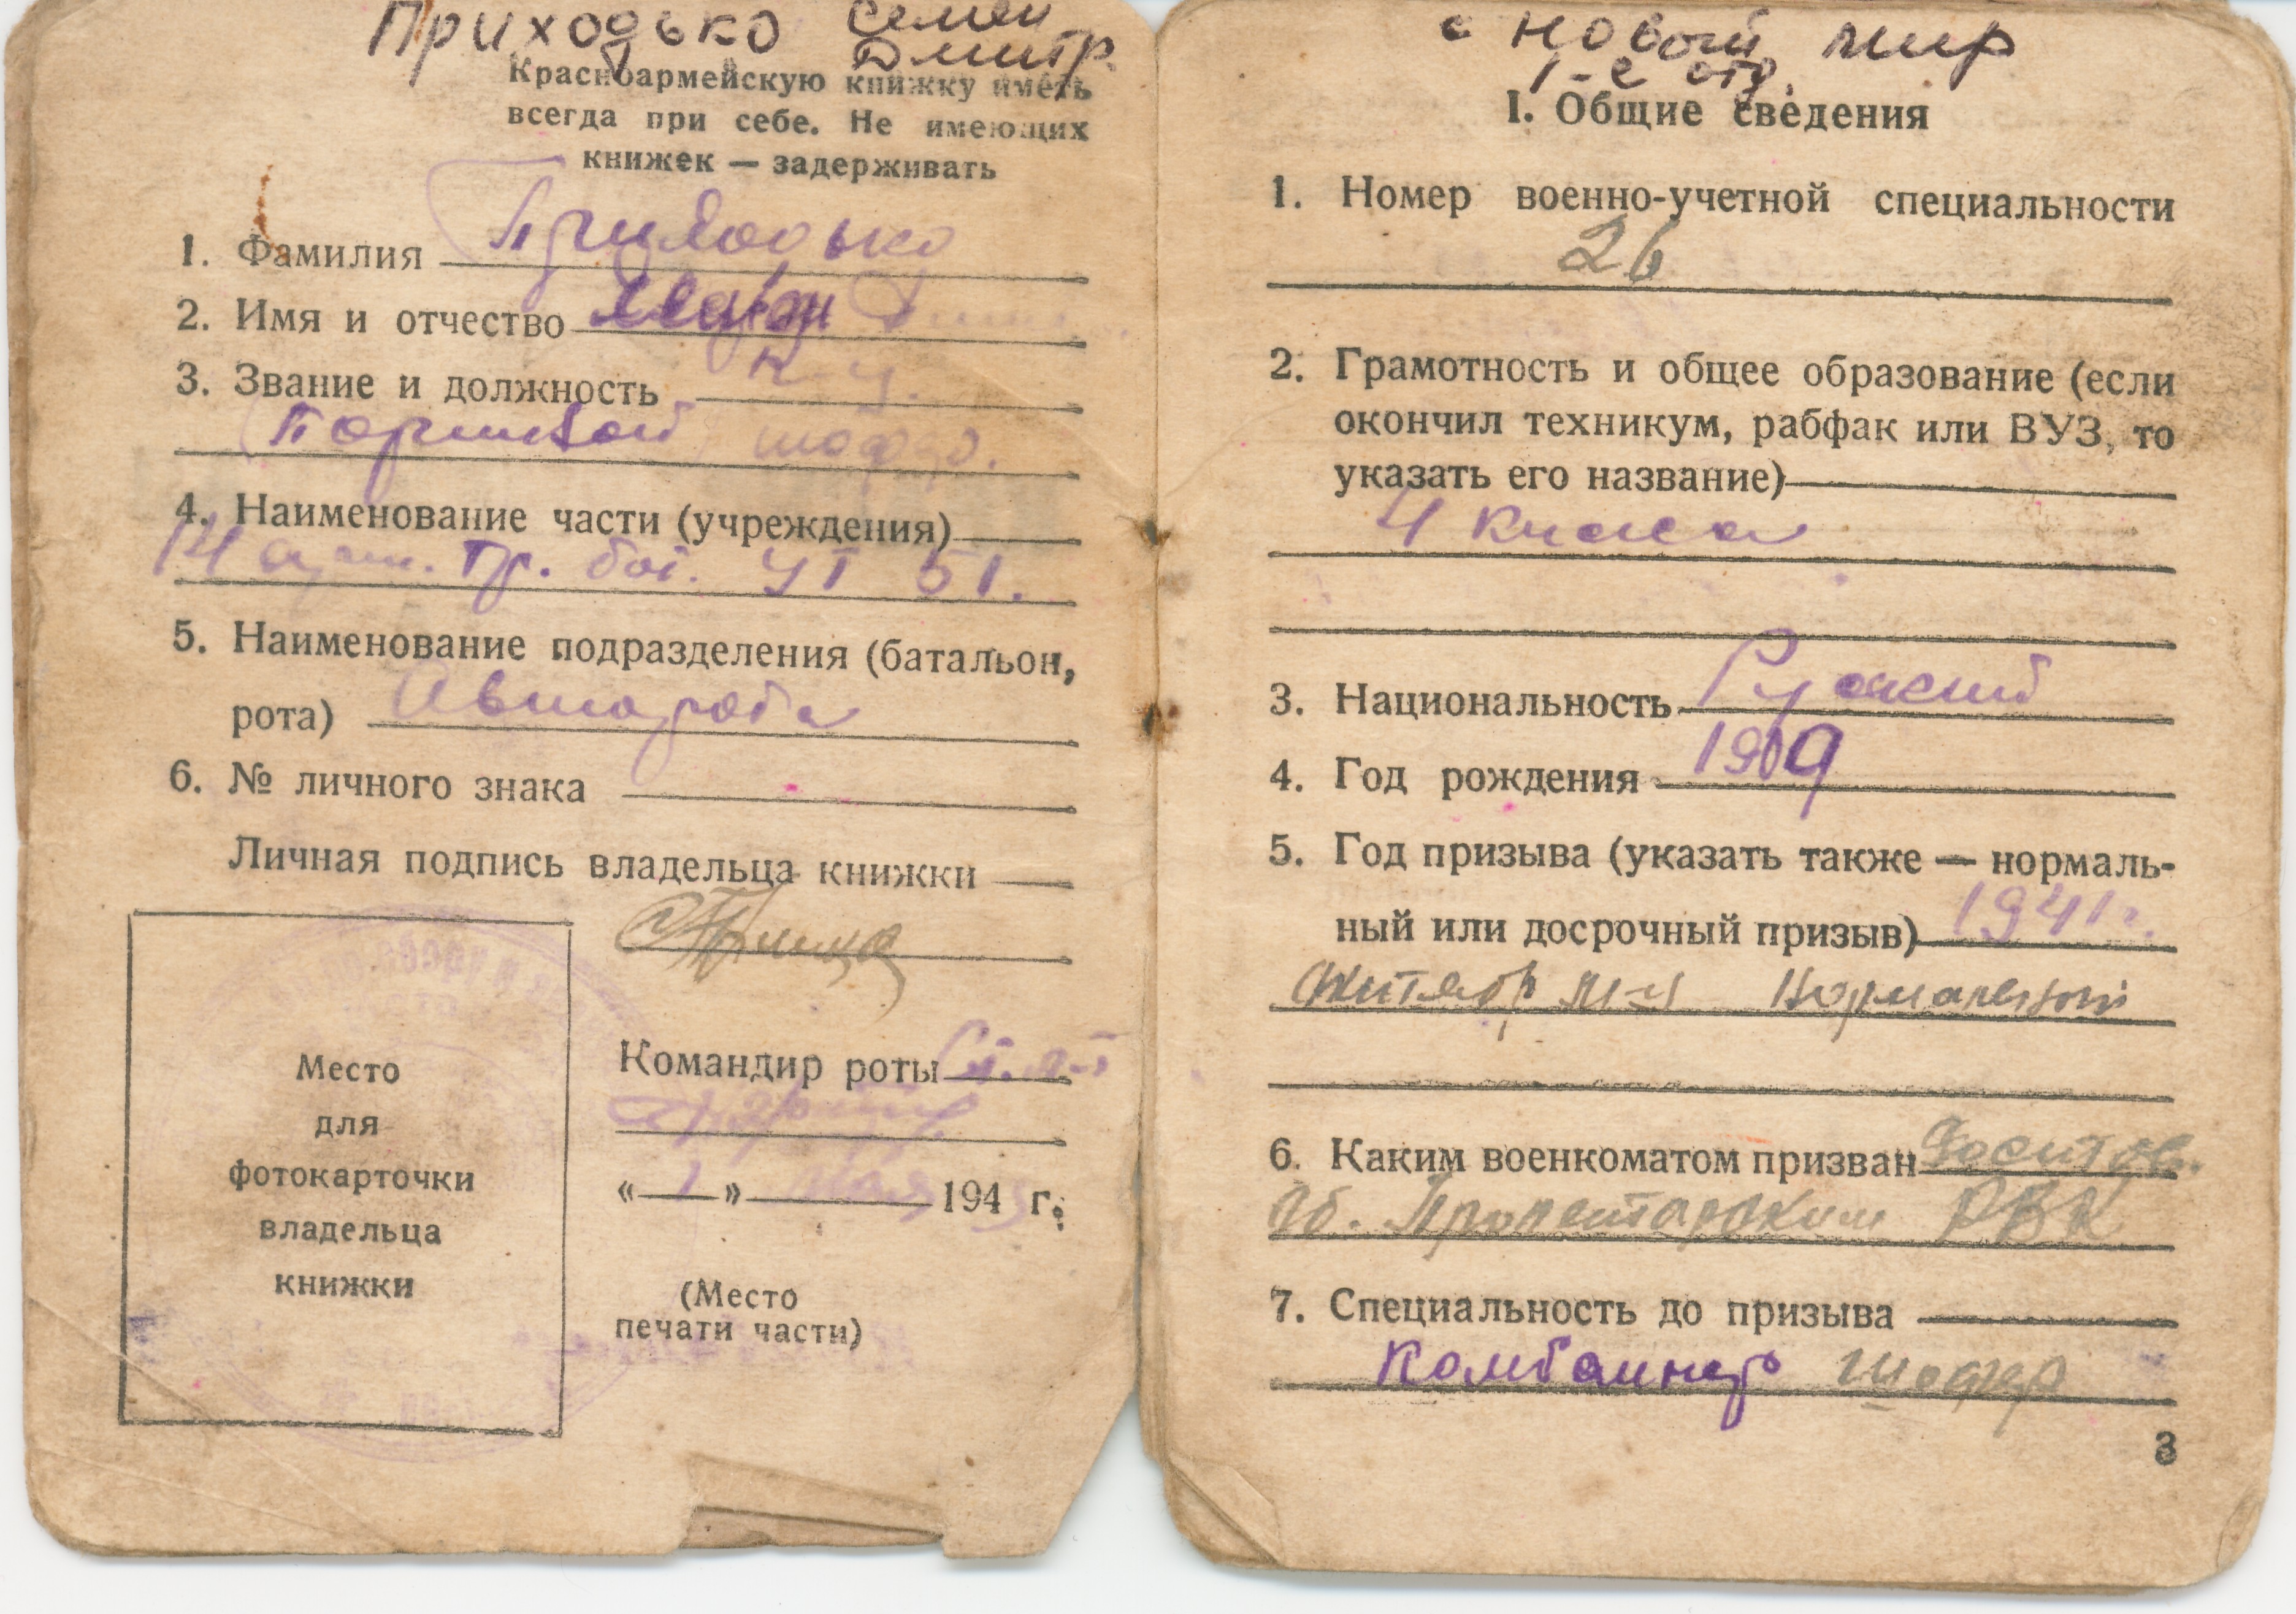 Приходько Семен
Дмитр.
Красноармейскую книжку иметь
всегда при себе. Не имеющих
книжек — задерживать
1. Фамилия Приходько
2. Имя и отчество
3. Звание и должность к-ц.
шофер.
4. Наименование части (учреждения)
5. Наименование подразделения (батальон,
рота) Авторота
6. № личного знака
Личная подпись владельца книжки
Место
для
фотокарточки
владельца
книжки
Командир роты
« 1 » мая 194 г.
(Место
печати части)
с новый мир
1-е отд.
I. Общие сведения
1. Номер военно-учетной специальности
26
2. Грамотность и общее образование (если
окончил техникум, рабфак или ВУЗ, то
указать его название)
4 класса
3. Национальность Русский
4. Год рождения 1909
5. Год призыва (указать также — нормаль-
ный или досрочный призыв) 1941 г.
Октябр м-ц Нормальный
6. Каким военкоматом призван Ростов.
об. Пролетарским РВК
7. Специальность до призыва
Комбайнер шофер
3